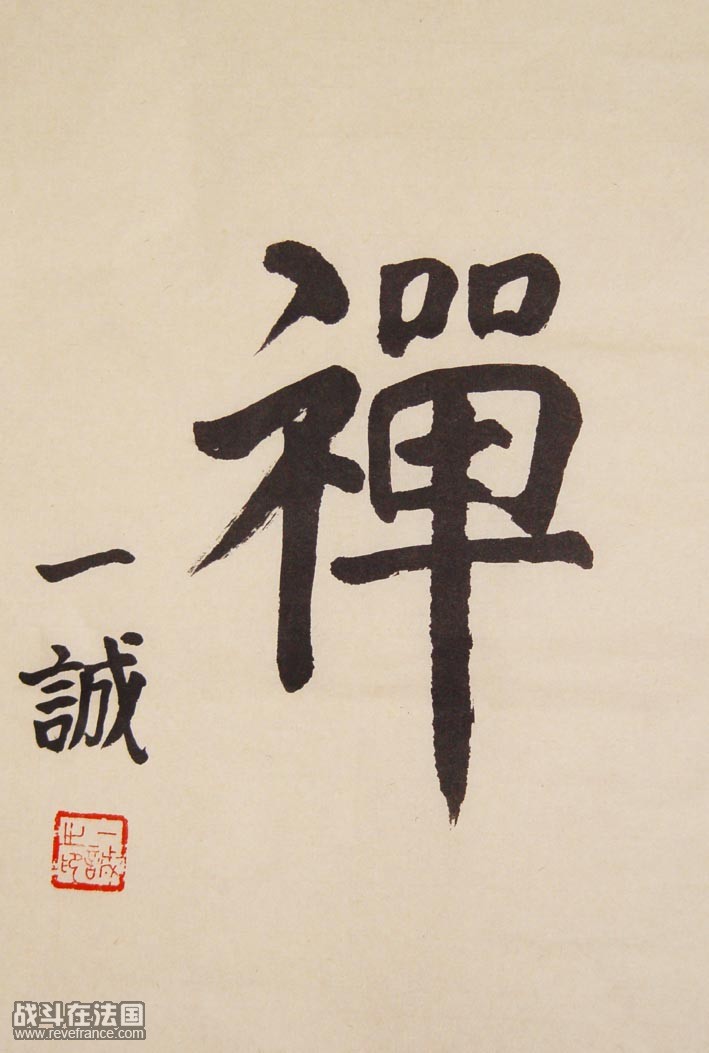 禪
一誠
一誠之印
战斗在法国
www.revefrance.com